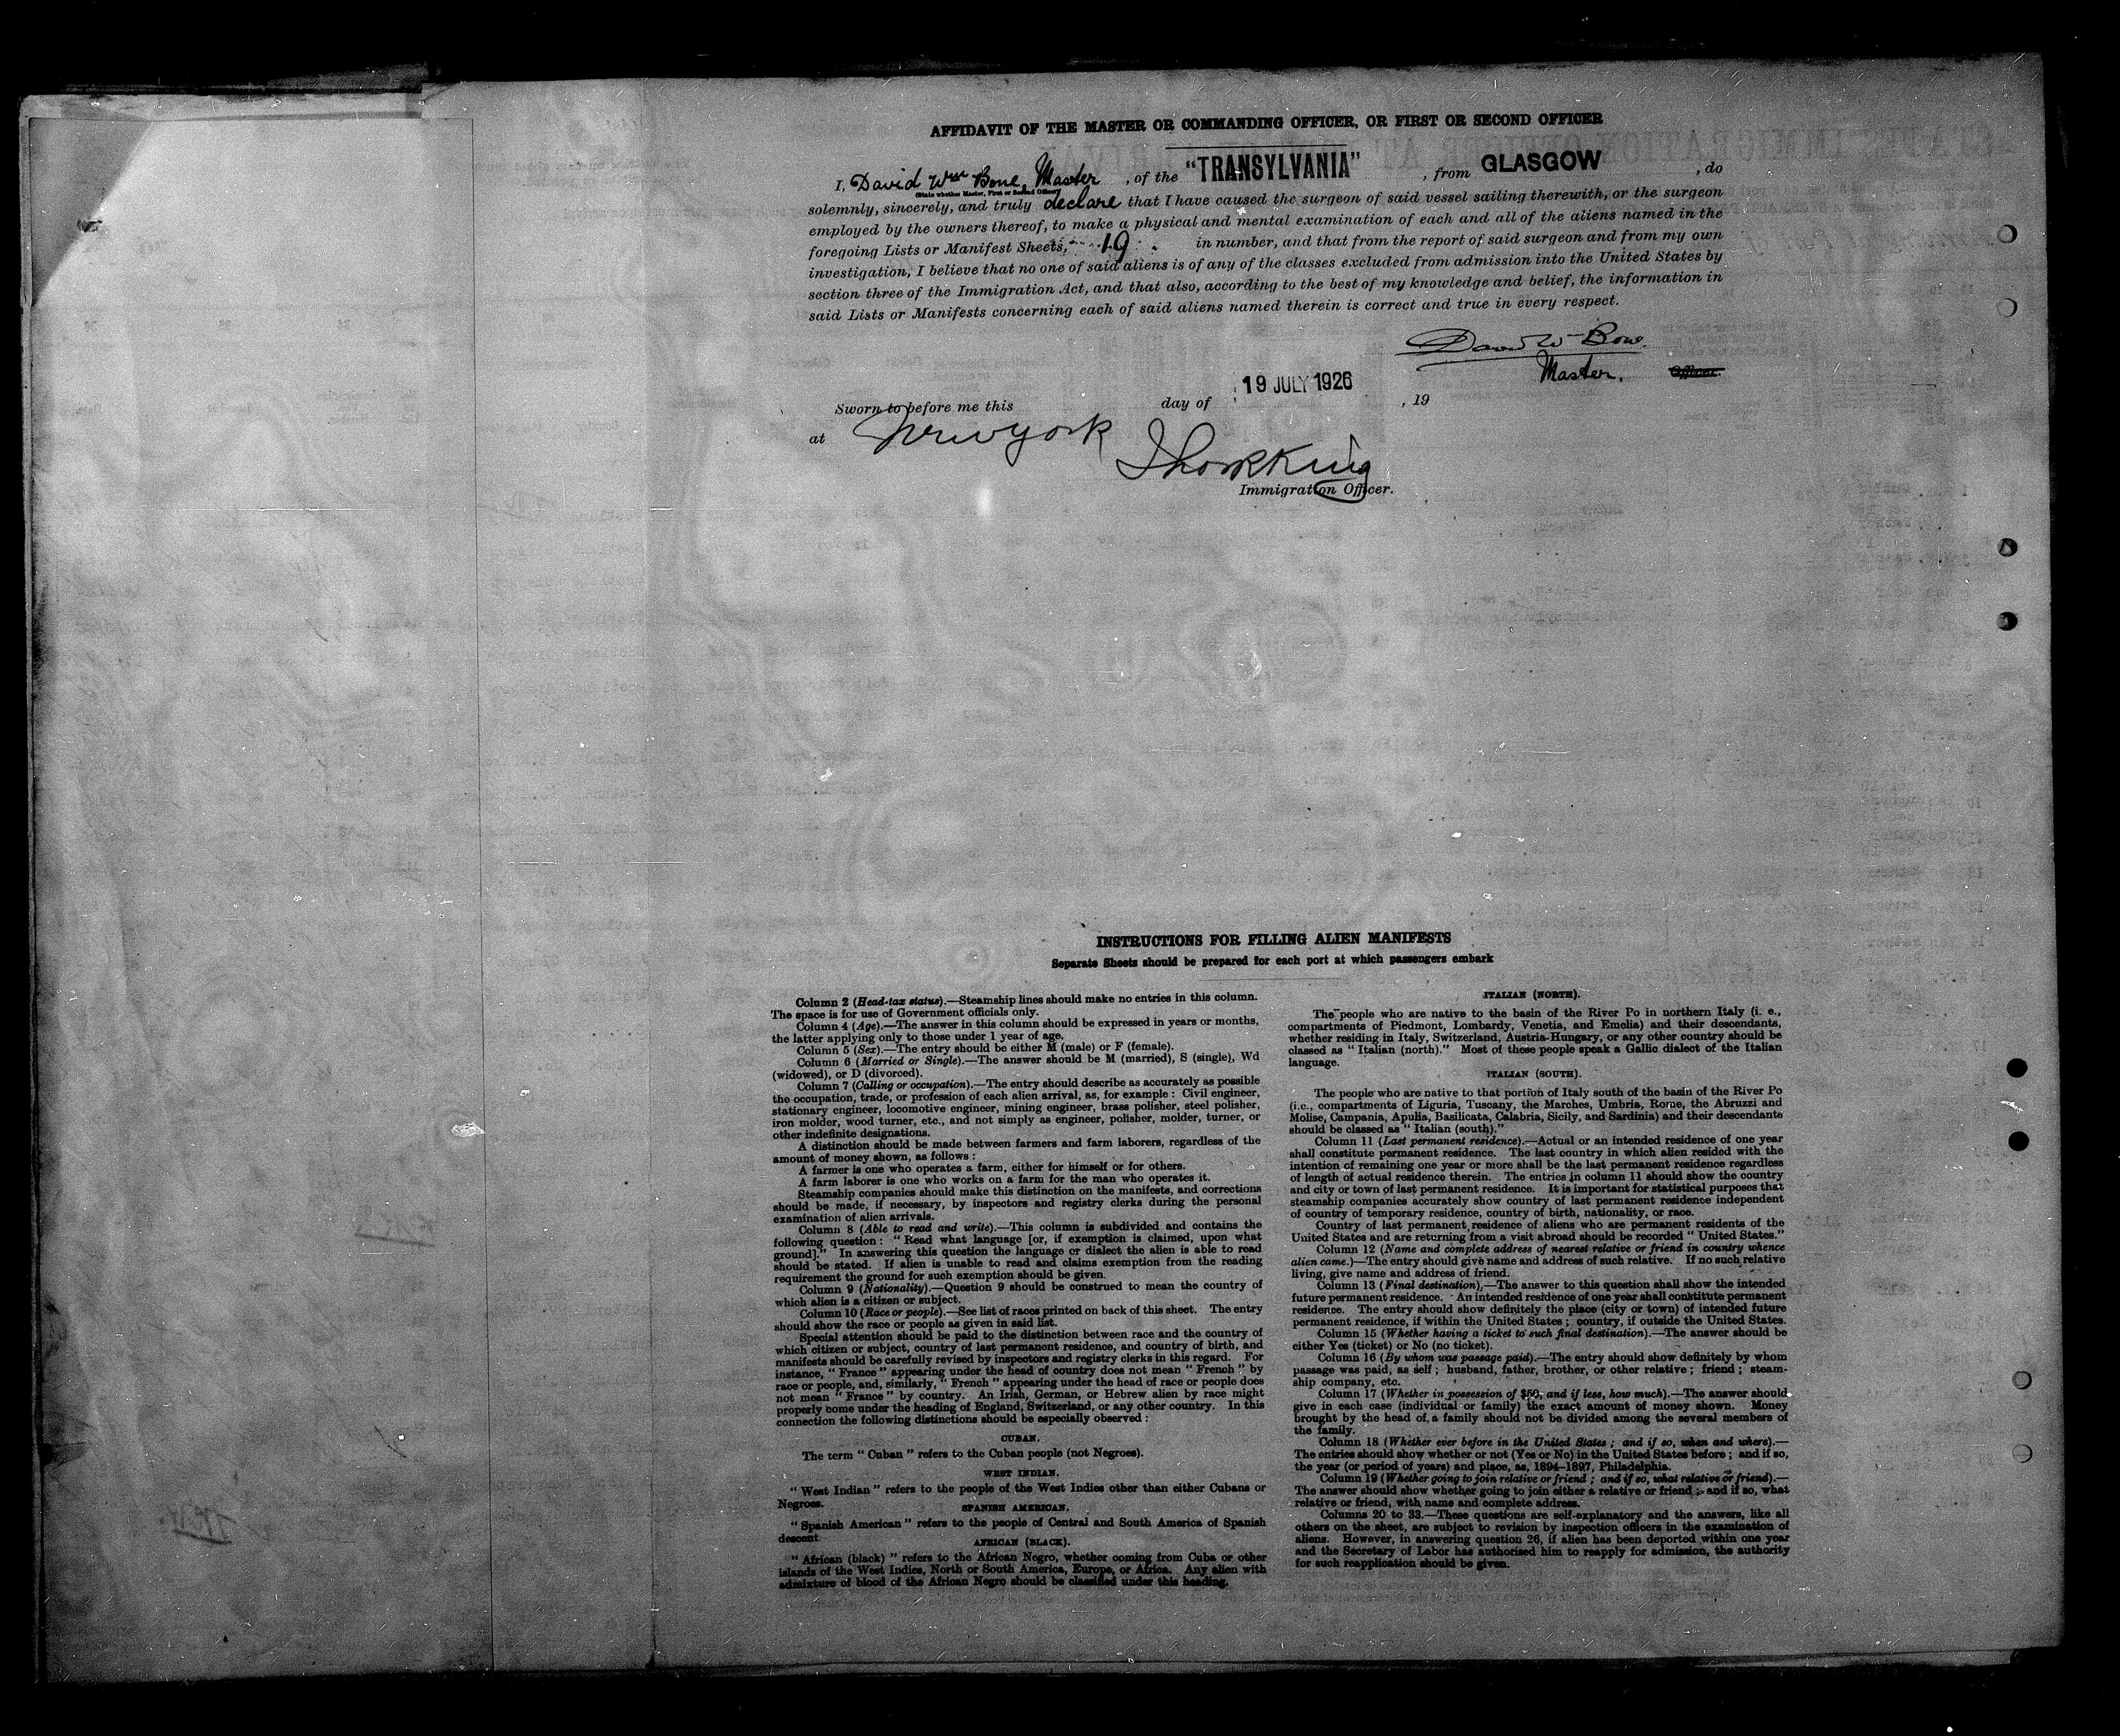 AFFIDAVIT OF THE MASTER OR COMMANDING OFFICER, OR FIRST OR SECOND OFFICER
I, David Wm Bone, Master, of the "TRANSYLVANIA", from GLASGOW, do
(State whether Master, First or Second Officer)
solemnly, sincerely, and truly declare that I have caused the surgeon of said vessel sailing therewith, or the surgeon
employed by the owners thereof, to make a physical and mental examination of each and all of the aliens named in the
foregoing Lists or Manifest Sheets, 19 in number, and that from the report of said surgeon and from my own
investigation, I believe that no one of said aliens is of any of the classes excluded from admission into the United States by
section three of the Immigration Act, and that also, according to the best of my knowledge and belief, the information in
said Lists or Manifests concerning each of said aliens named therein is correct and true in every respect.
David W Bone.
Master. Officer.
19 JULY 1926
Sworn to before me this day of , 19
at New York
King
Immigration Officer.
INSTRUCTIONS FOR FILLING ALIEN MANIFESTS
Separate Sheets should be prepared for each port at which passengers embark
Column 2 (Head-tax status).—Steamship lines should make no entries in this column.
The space is for use of Government officials only.
Column 4 (Age).—The answer in this column should be expressed in years or months,
the latter applying only to those under 1 year of age.
Column 5 (Sex).—The entry should be either M (male) or F (female).
Column 6 (Married or Single).—The answer should be M (married), S (single), Wd
(widowed), or D (divorced).
Column 7 (Calling or occupation).—The entry should describe as accurately as possible
the occupation, trade, or profession of each alien arrival, as, for example : Civil engineer,
stationary engineer, locomotive engineer, mining engineer, brass polisher, steel polisher,
iron molder, wood turner, etc., and not simply as engineer, polisher, molder, turner, or
other indefinite designations.
A distinction should be made between farmers and farm laborers, regardless of the
amount of money shown, as follows :
A farmer is one who operates a farm, either for himself or for others.
A farm laborer is one who works on a farm for the man who operates it.
Steamship companies should make this distinction on the manifests, and corrections
should be made, if necessary, by inspectors and registry clerks during the personal
examination of alien arrivals.
Column 8 (Able to read and write).—This column is subdivided and contains the
following question : " Read what language [or, if exemption is claimed, upon what
ground]." In answering this question the language or dialect the alien is able to read
should be stated. If alien is unable to read and claims exemption from the reading
requirement the ground for such exemption should be given.
Column 9 (Nationality).—Question 9 should be construed to mean the country of
which alien is a citizen or subject.
Column 10 (Race or people).—See list of races printed on back of this sheet. The entry
should show the race or people as given in said list.
Special attention should be paid to the distinction between race and the country of
which citizen or subject, country of last permanent residence, and country of birth, and
manifests should be carefully revised by inspectors and registry clerks in this regard. For
instance, " France " appearing under the head of country does not mean " French " by
race or people, and, similarly, " French " appearing under the head of race or people does
not mean " France " by country. An Irish, German, or Hebrew alien by race might
properly come under the heading of England, Switzerland, or any other country. In this
connection the following distinctions should be especially observed :
CUBAN.
The term " Cuban " refers to the Cuban people (not Negroes).
WEST INDIAN.
" West Indian " refers to the people of the West Indies other than either Cubans or
Negroes.
SPANISH AMERICAN.
" Spanish American " refers to the people of Central and South America of Spanish
descent
AFRICAN (BLACK).
" African (black) " refers to the African Negro, whether coming from Cuba or other
islands of the West Indies, North or South America, Europe, or Africa. Any alien with
admixture of blood of the African Negro should be classified under this heading.
ITALIAN (NORTH).
The people who are native to the basin of the River Po in northern Italy (i. e.,
compartments of Piedmont, Lombardy, Venetia, and Emelia) and their descendants,
whether residing in Italy, Switzerland, Austria-Hungary, or any other country should be
classed as " Italian (north)." Most of these people speak a Gallic dialect of the Italian
language.
ITALIAN (SOUTH).
The people who are native to that portion of Italy south of the basin of the River Po
(i.e., compartments of Liguria, Tuscany, the Marches, Umbria, Rome, the Abruzzi and
Molise, Campania, Apulia, Basilicata, Calabria, Sicily, and Sardinia) and their descendants
should be classed as " Italian (south)."
Column 11 (Last permanent residence).—Actual or an intended residence of one year
shall constitute permanent residence. The last country in which alien resided with the
intention of remaining one year or more shall be the last permanent residence regardless
of length of actual residence therein. The entries in column 11 should show the country
and city or town of last permanent residence. It is important for statistical purposes that
steamship companies accurately show country of last permanent residence independent
of country of temporary residence, country of birth, nationality, or race.
Country of last permanent residence of aliens who are permanent residents of the
United States and are returning from a visit abroad should be recorded " United States."
Column 12 (Name and complete address of nearest relative or friend in country whence
alien came.)—The entry should give name and address of such relative. If no such relative
living, give name and address of friend.
Column 13 (Final destination),—The answer to this question shall show the intended
future permanent residence. An intended residence of one year shall constitute permanent
residence. The entry should show definitely the place (city or town) of intended future
permanent residence, if within the United States ; country, if outside the United States.
Column 15 (Whether having a ticket to such final destination).—The answer should be
either Yes (ticket) or No (no ticket).
Column 16 (By whom was passage paid).—The entry should show definitely by whom
passage was paid, as self ; husband, father, brother, or other relative ; friend ; steam-
ship company, etc.
Column 17 (Whether in possession of $50, and if less, how much).—The answer should
give in each case (individual or family) the exact amount of money shown. Money
brought by the head of a family should not be divided among the several members of
the family.
Column 18 (Whether ever before in the United States ; and if so, when and where).—
The entries should show whether or not (Yes or No) in the United States before ; and if so,
the year (or period of years) and place, as, 1894–1897, Philadelphia.
Column 19 (Whether going to join relative or friend ; and if so, what relative or friend).—
The answer should show whether going to join either a relative or friend ; and if so, what
relative or friend, with name and complete address.
Columns 20 to 33.—These questions are self-explanatory and the answers, like all
others on the sheet, are subject to revision by inspection officers in the examination of
aliens. However, in answering question 26, if alien has been deported within one year
and the Secretary of Labor has authorised him to reapply for admission, the authority
for such reapplication should be given.